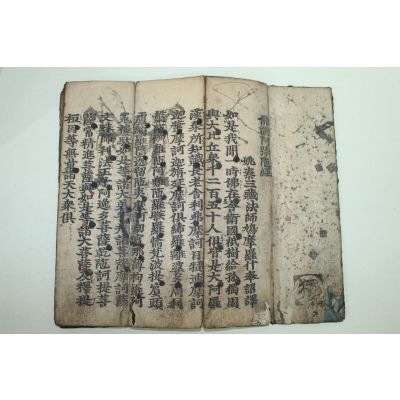 佛說阿彌陀經
姚秦三藏法師鳩摩羅什奉詔譯
如是我聞一時佛在舍衛國祇樹給孤獨園
與大比丘衆千二百五十人俱皆是大阿羅
漢衆所知識長老舍利弗摩訶目揵連摩訶
迦葉摩訶迦旃延摩訶俱絺羅離婆多周利
槃陀伽難陀阿難陀羅睺羅憍梵波提賓頭
盧頗羅墮迦留陀夷摩訶劫賓那薄拘羅阿
㝹樓馱如是等諸大弟子并諸菩薩摩訶薩
文殊師利法王子阿逸多菩薩乾陀訶提菩
薩常精進菩薩與如是等諸大菩薩及釋提
桓因等無量諸天大衆俱